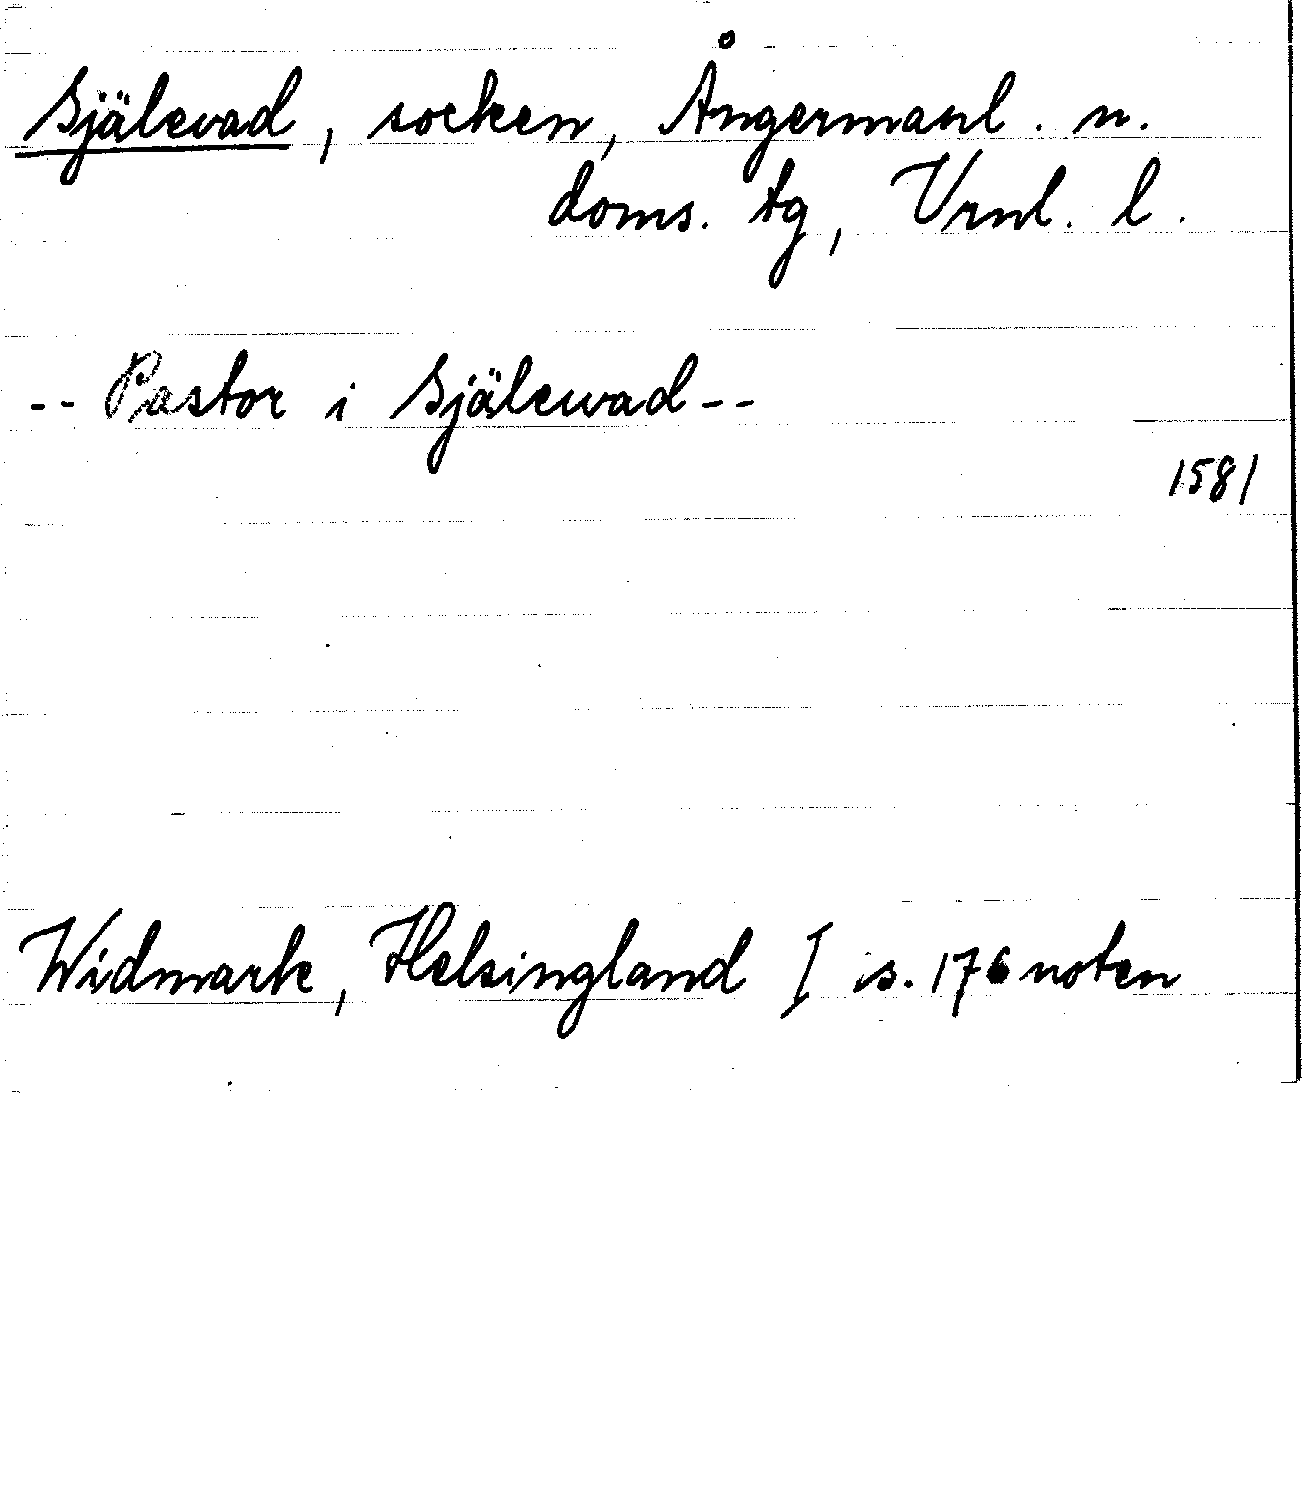 Själevad, socken, Ångermanl. n.
doms. tg, Vrnl. l.
-- Pastor i Själewad --
1581
Widmark, Helsingland I s. 176 noten